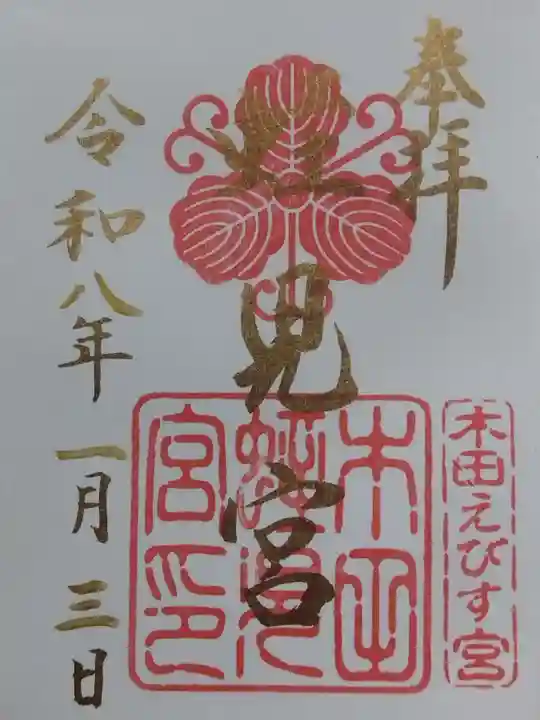 奉拝
木田えびす宮
蛭児宮
木田
蛭児
宮印
令和八年一月三日